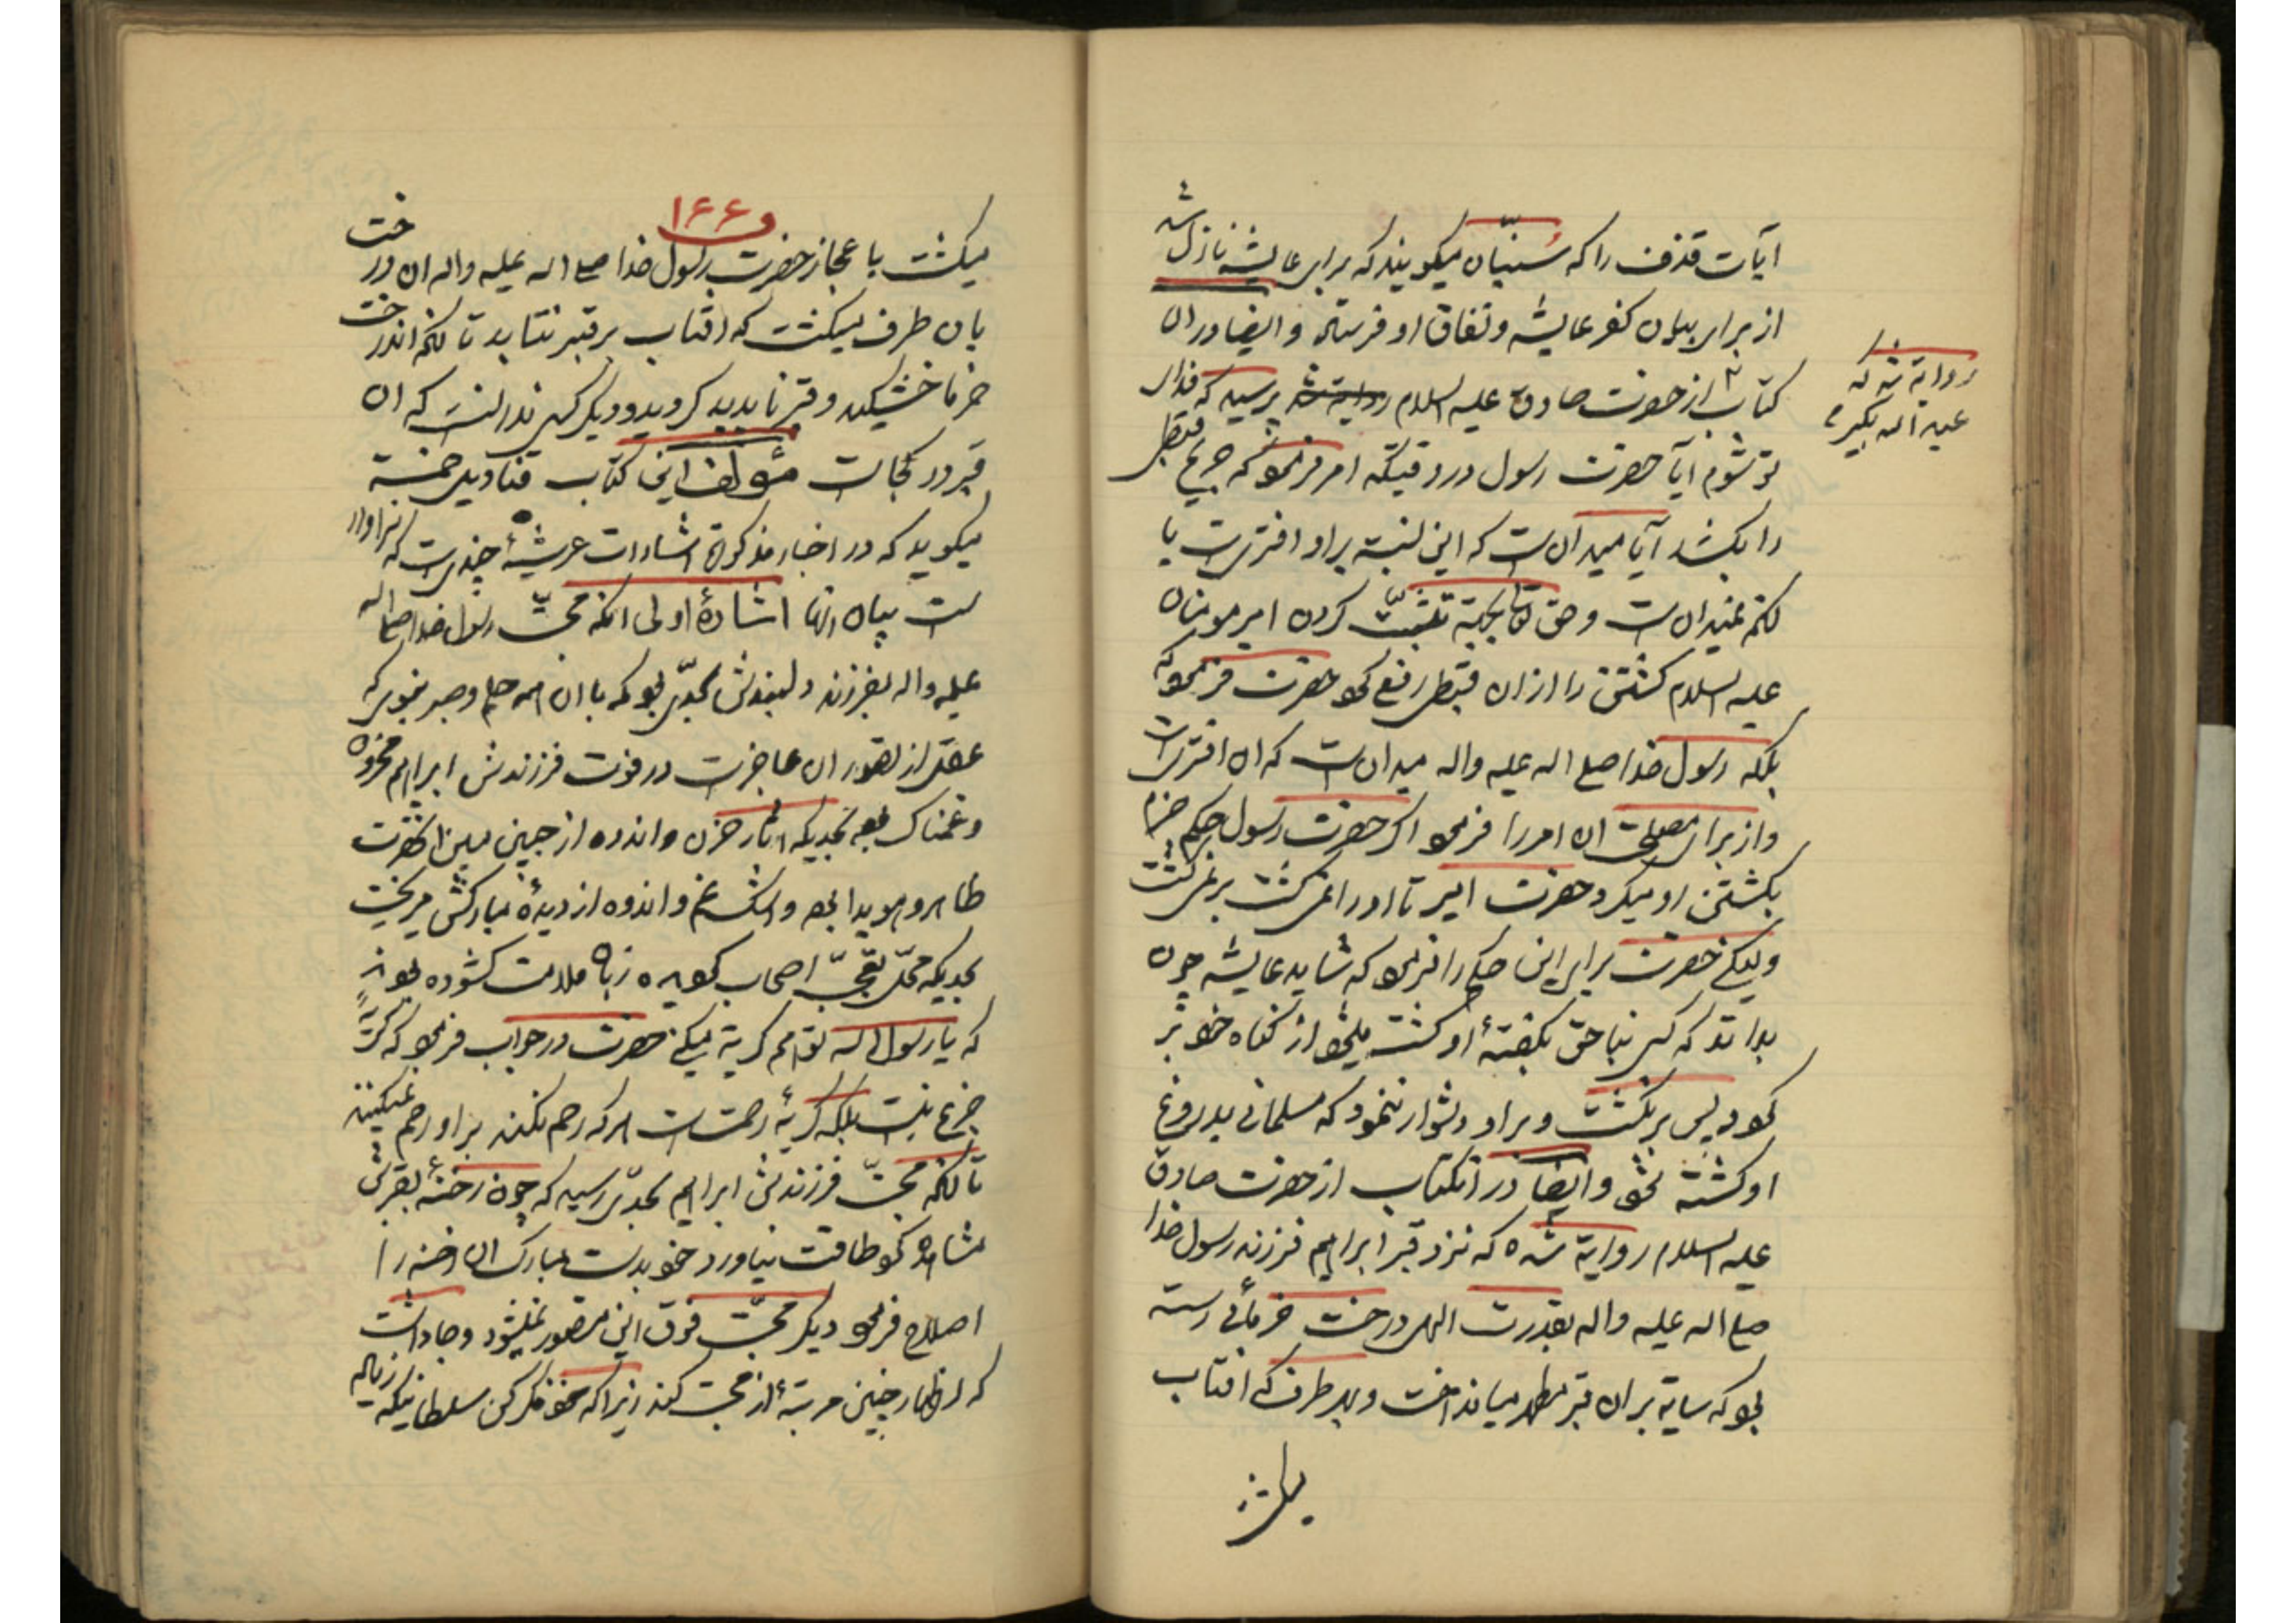 آیات قذف را که سُنیّان میکویند که برای عایشه نازل شد
از برای بیان کفر عایشه و نفاق او فرستاد و ایضا در ان
کتاب از حضرت صادق علیه السلام پرسید که فدای
روایة شده که
عبد اله بکیر
تو شوم ایا حضرت رسول در وقتیکه امر فرمود که جریح قبطی
را بکشد آیا میدانست که این نسبة بر او افتریست یا
انکه نمیدانست و حق تعالی بجهة تثبّت کردن امیر مومنان
علیه السلام کشتن را از ان قبطی رفع کرد حضرت فرمود که
بلکه رسول خدا صلی اله علیه واله میدانست که ان افتریست
و از برای مصلحتی ان امر را فرمود اکر حضرت رسول حکم جزم
بکشتن او میکرد حضرت امیر تا او را نمی کشت برنمی کشت
ولیکن حضرت برای این حکم را فرمود که شاید عایشه چون
بداند که کسی بناحق بکفتهٔ او کشته میشود از کناه خود بر
کردد پس برنکشت و بر او دشوار ننمود که مسلمانی بدروغ
او کشته شود و ایضا در انکتاب از حضرت صادق
علیه السلام روایة شده که نزد قبر ابراهیم فرزند رسول خدا
صلی اله علیه واله بقدرت الهی درخت خرمائی رسته
بود که سایه بر ان قبر مطهر میانداخت و بهر طرف که افتاب
میکشت
۱۶۶
میکشت باعجاز حضرت رسول خدا صلی اله علیه واله ان درخت
بان طرف میکشت که افتاب بر قبر نتابد تا انکه اندرخت
خرما خشکید و قبر ناپدید کردید و دیکر کسی ندانست که ان
قبر در کجاست مؤلف این کتاب قنادیل حسنیة
میکوید که در اخبار مذکورة اشارات عرشیهٔ چندیست که سزاوار
است بیان انها اشارهٔ اولی انکه محبّت رسول خدا صلی اله
علیه واله بفرزند دلبندش بحدّی بود که با ان همه حلم و صبر نبوی که
عقل از تصور ان عاجزست در فوت فرزندش ابراهیم محزون
و غمناک بود بحدیکه اثار حزن و اندوه از جبین مبین انحضرت
ظاهر و هویدا بود و اشک غم و اندوه از دیدهٔ مبارکش میریخت
بحدیکه محلّ تعجّب اصحاب کردیده زبان ملامت کشوده بودند
که یا رسول اله تو هم کریه میکنی حضرت در جواب فرمود که کریهٔ
جزع نیست بلکه کریهٔ رحمتست هر که رحم نکند بر او رحم نمیکنند
تا انکه محبّت فرزندش ابراهیم بحدّی رسید که چون رخنهٔ بقبرش
مشاهده کرد طاقت نیاورد خود بدست مبارک ان رخنه را
اصلاح فرمود دیکر محبّت فوق این متصور نمیشود و جا داشت
که اظهار چنین مرتبهٔ از محبت کند زیرا که خود فکر کن سلطانیکه